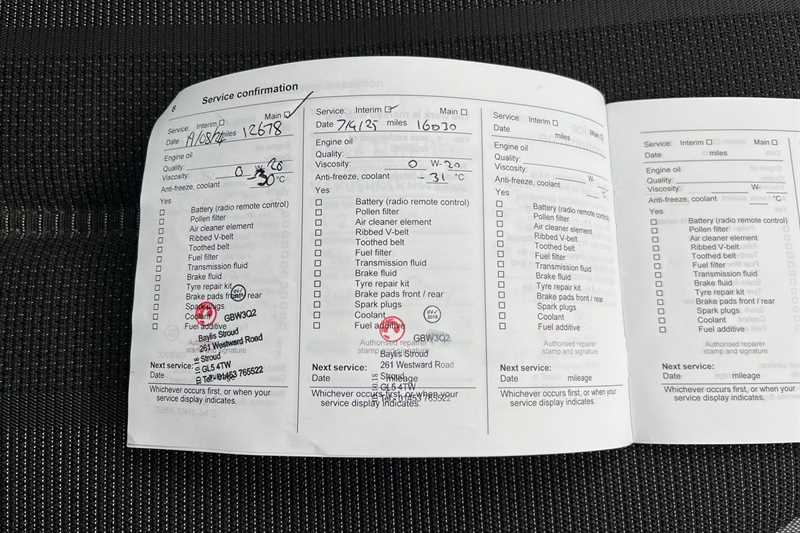 8 Service confirmation
Service: Interim Main
Date miles 12678
Engine oil
Quality:
Viscosity: 0 W-20
Anti-freeze, coolant -30 °C
Yes
Battery (radio remote control)
Pollen filter
Air cleaner element
Ribbed V-belt
Toothed belt
Fuel filter
Transmission fluid
Brake fluid
Tyre repair kit
Brake pads front / rear
Spark plugs
Coolant
Fuel additive
GBW3Q2
Baylis Stroud
261 Westward Road
Stroud
GL5 4TW
Tel: 01453 765522
Next service:
Date
Whichever occurs first, or when your
service display indicates.
Service: Interim Main
Date 7/4/25 miles 16030
Engine oil
Quality:
Viscosity: 0 W-20
Anti-freeze, coolant -31 °C
Yes
Battery (radio remote control)
Pollen filter
Air cleaner element
Ribbed V-belt
Toothed belt
Fuel filter
Transmission fluid
Brake fluid
Tyre repair kit
Brake pads front / rear
Spark plugs
Coolant
Fuel additive
GBW3Q2
Authorised repairer
stamp and signature
Baylis Stroud
261 Westward Road
Stroud
GL5 4TW
Tel: 01453 765522
Next service:
Date mileage
Whichever occurs first, or when your
service display indicates.
Service: Interim Main
Date miles
Engine oil
Quality:
Viscosity: W-
Anti-freeze, coolant °C
Yes
Battery (radio remote control)
Pollen filter
Air cleaner element
Ribbed V-belt
Toothed belt
Fuel filter
Transmission fluid
Brake fluid
Tyre repair kit
Brake pads front / rear
Spark plugs
Coolant
Fuel additive
Authorised repairer
stamp and signature
Next service:
Date mileage
Whichever occurs first, or when your
service display indicates.
Service: Interim Main
Date miles
Engine oil
Quality:
Viscosity: W-
Anti-freeze, coolant °C
Yes
Battery (radio remote control)
Pollen filter
Air cleaner element
Ribbed V-belt
Toothed belt
Fuel filter
Transmission fluid
Brake fluid
Tyre repair kit
Brake pads front / rear
Spark plugs
Coolant
Fuel additive
Authorised repairer
stamp and signature
Next service:
Date mileage
Whichever occurs first, or when your
service display indicates.